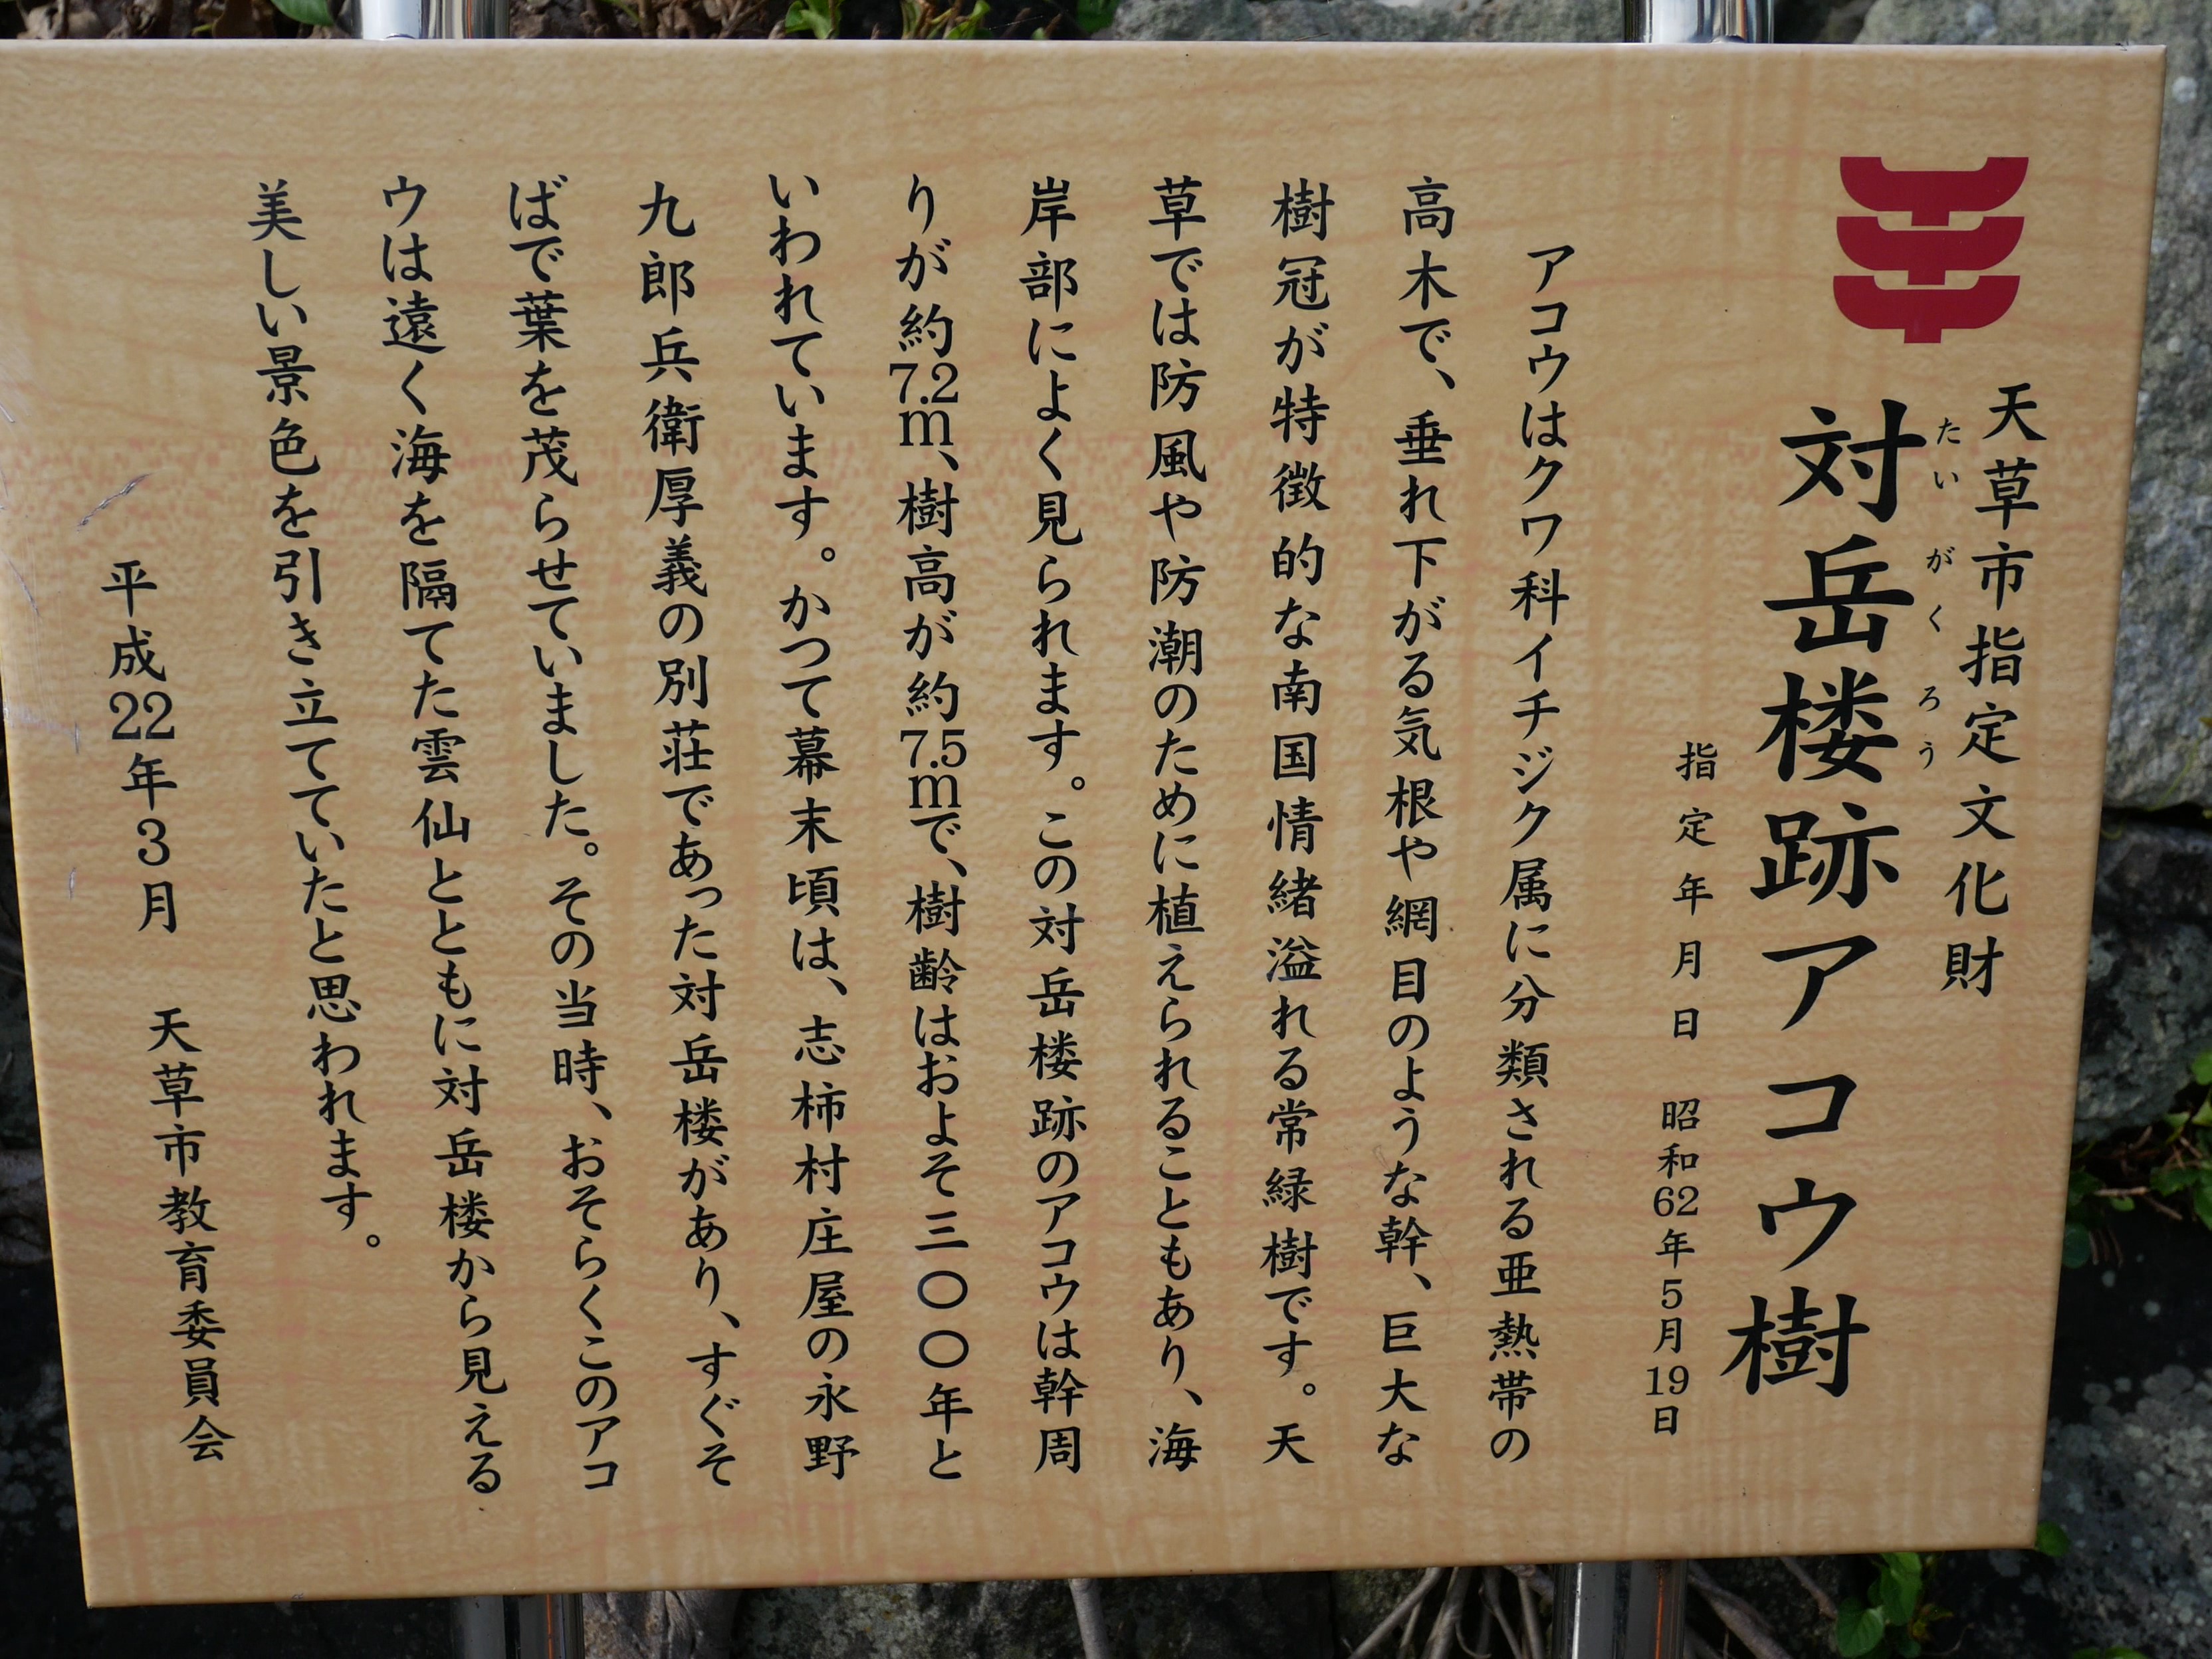 天草市指定文化財
対岳楼跡アコウ樹
たいがくろう
指定年月日 昭和62年5月19日
アコウはクワ科イチジク属に分類される亜熱帯の
高木で、垂れ下がる気根や網目のような幹、巨大な
樹冠が特徴的な南国情緒溢れる常緑樹です。天
草では防風や防潮のために植えられることもあり、海
岸部によく見られます。この対岳楼跡のアコウは幹周
りが約7.2m、樹高が約7.5mで、樹齢はおよそ三〇〇年と
いわれています。かつて幕末頃は、志柿村庄屋の永野
九郎兵衛厚義の別荘であった対岳楼があり、すぐそ
ばで葉を茂らせていました。その当時、おそらくこのアコ
ウは遠く海を隔てた雲仙とともに対岳楼から見える
美しい景色を引き立てていたと思われます。
平成22年3月 天草市教育委員会